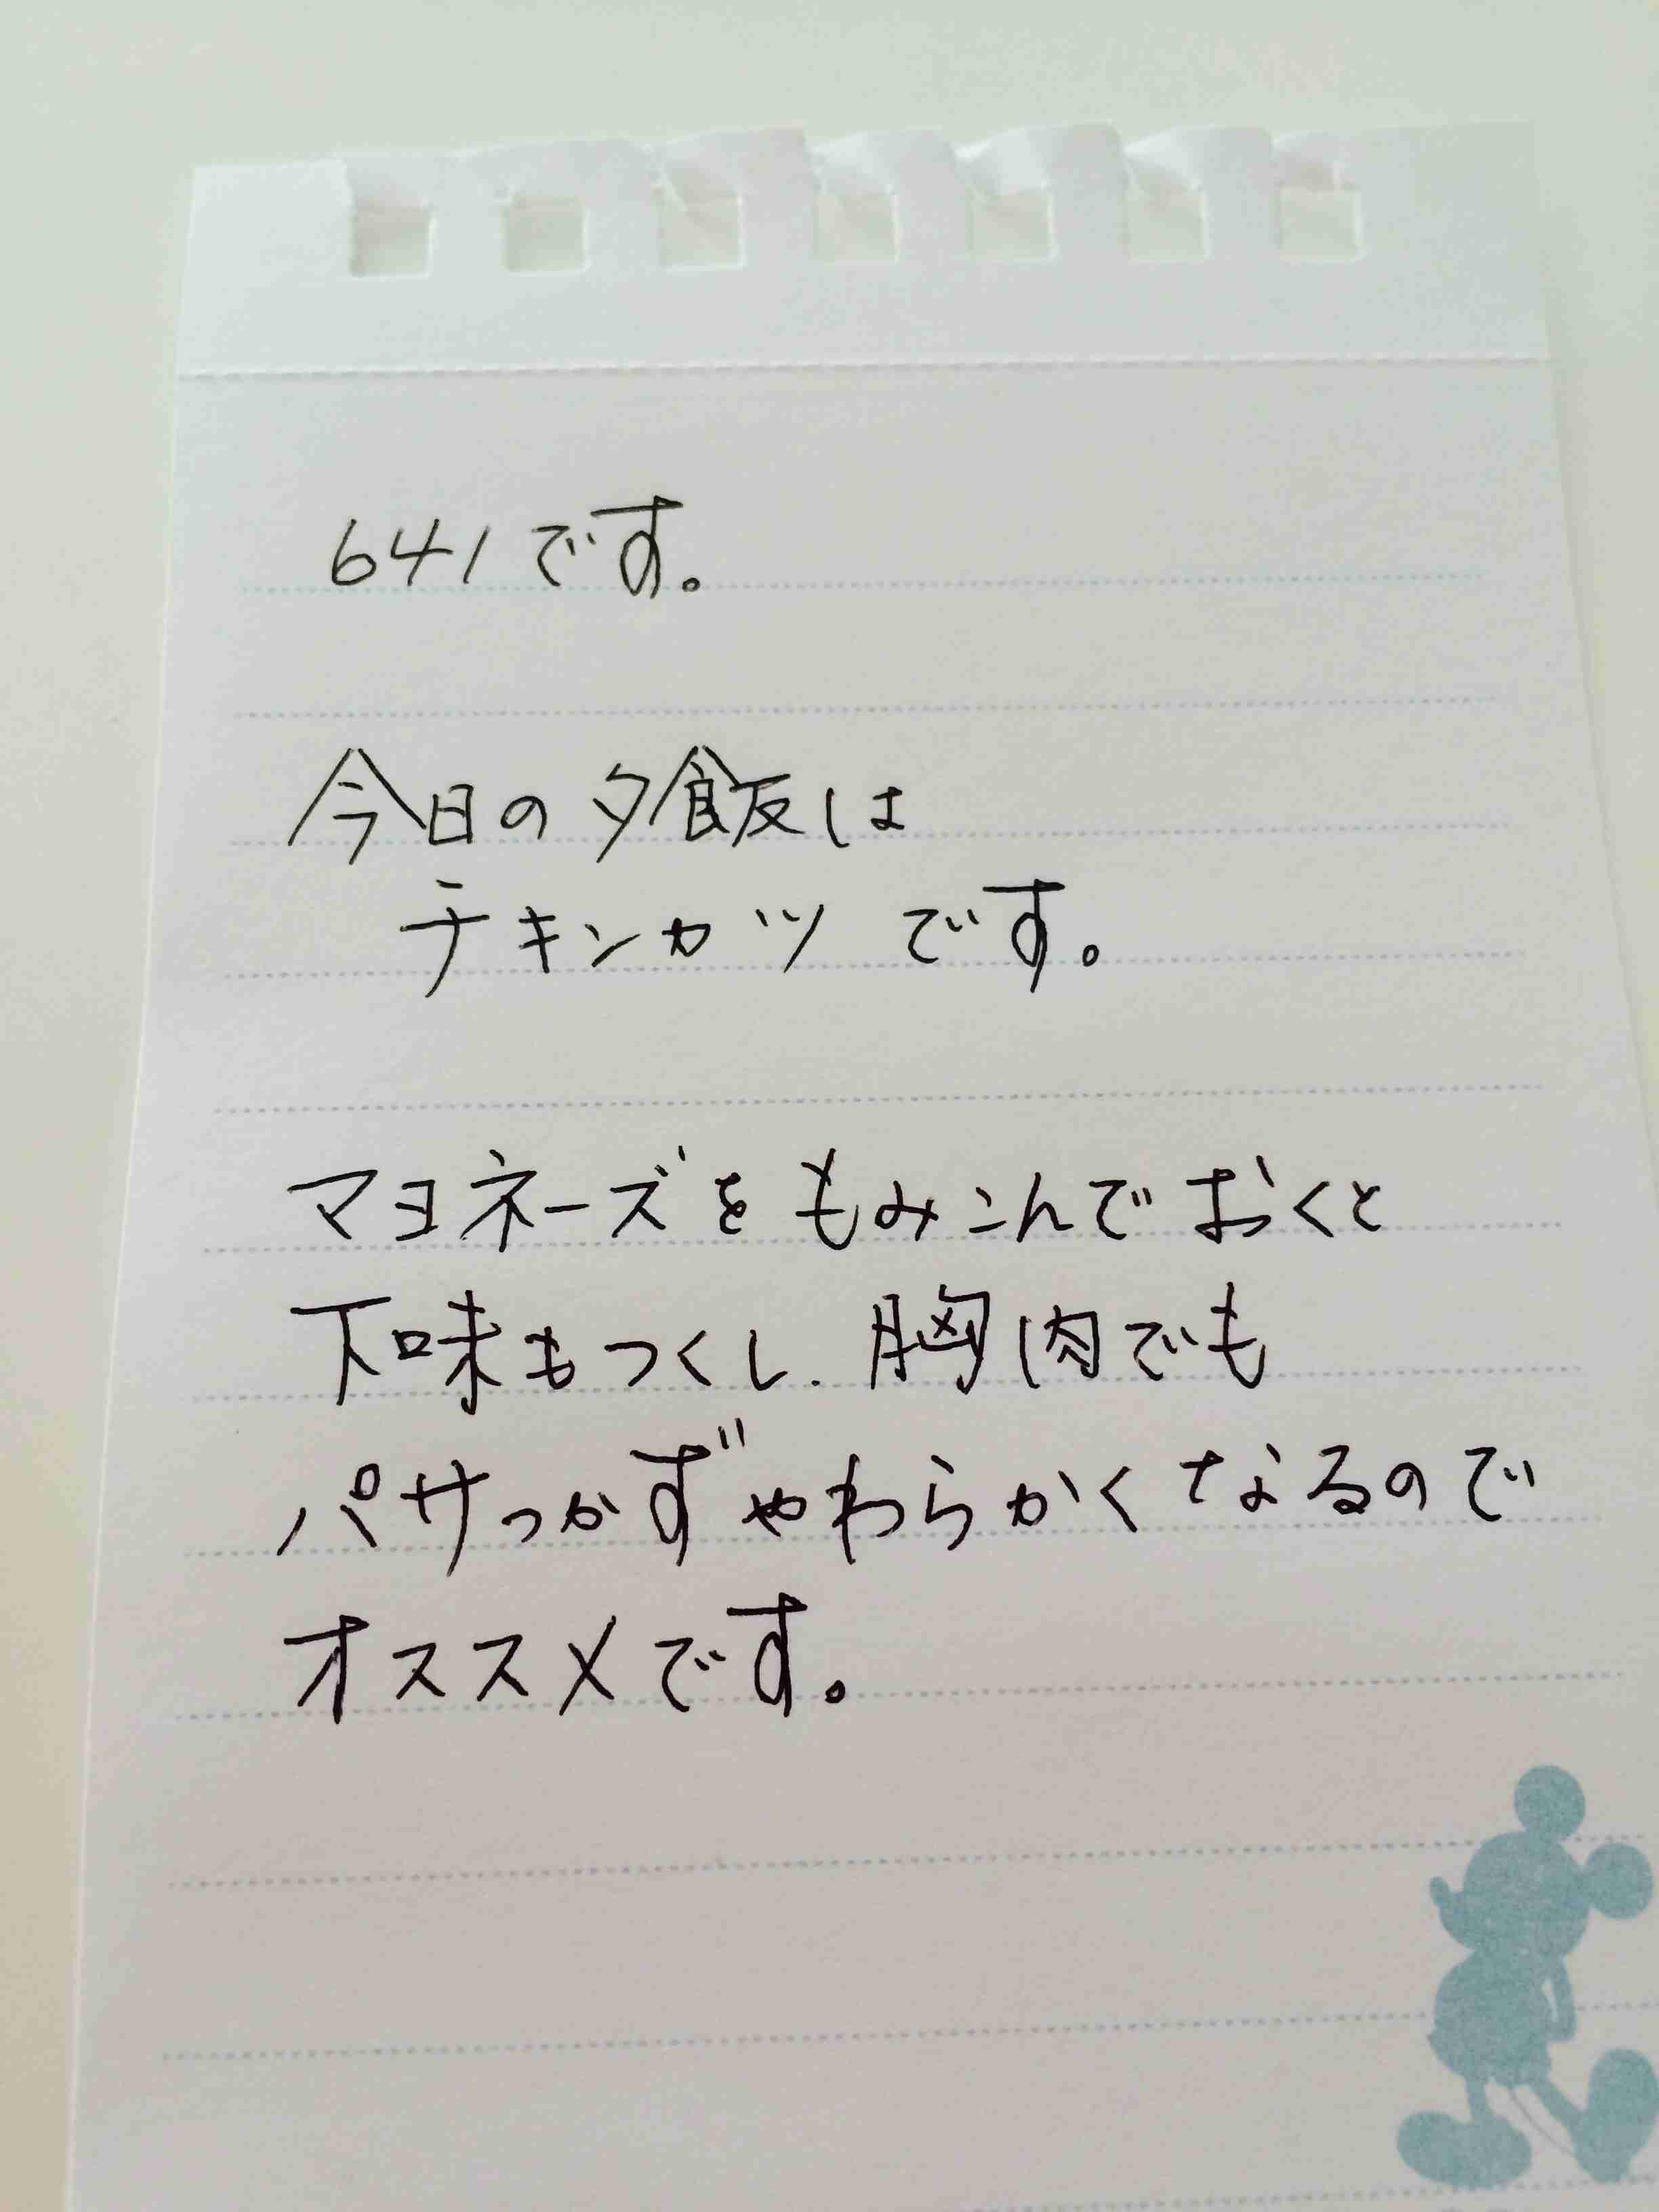 641です。
今日の夕飯は
チキンカツです。
マヨネーズをもみこんでおくと
下味もつくし、胸肉でも
パサつかずやわらかくなるので
オススメです。